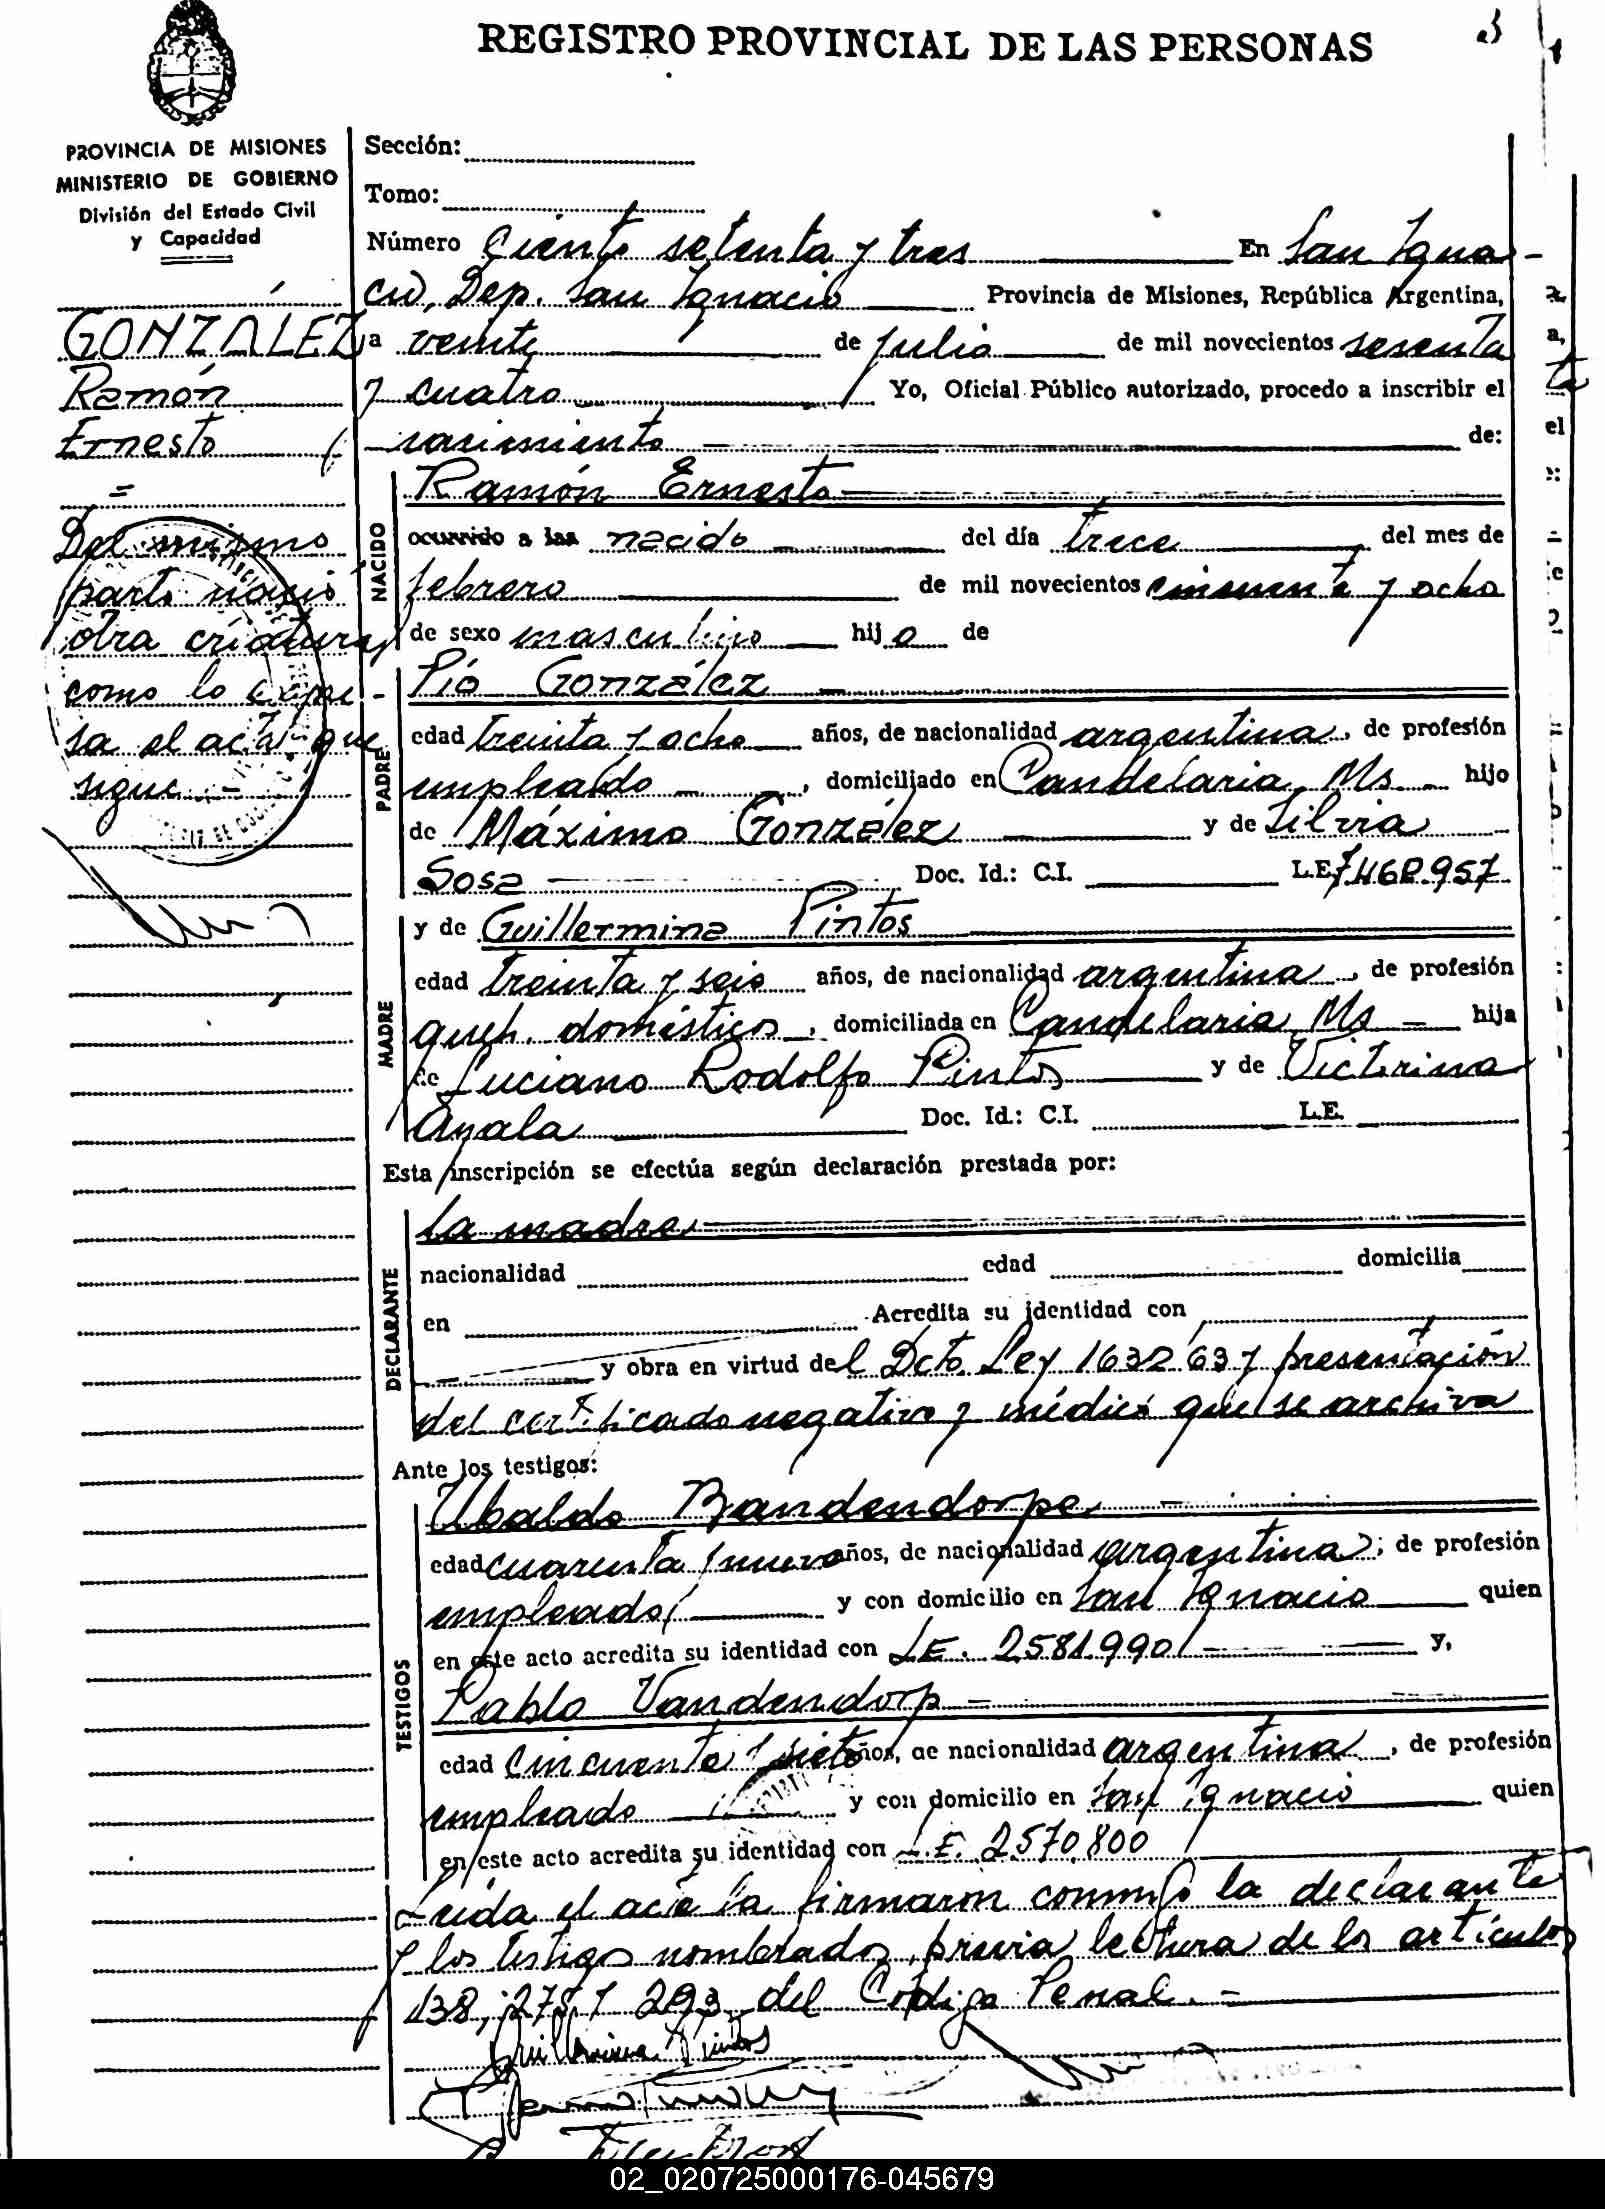 REGISTRO PROVINCIAL DE LAS PERSONAS
PROVINCIA DE MISIONES
MINISTERIO DE GOBIERNO
División del Estado Civil
y Capacidad
GONZALEZ
Ramón
Ernesto
=
Del mismo
parto nació
otra criatura,
como lo expre-
sa el acta que
sigue.-
Sección:
Tomo:
Número Ciento setenta y tres En San Igna-
cio, Dep. San Ignacio Provincia de Misiones, República Argentina,
a veinte de julio de mil novecientos sesenta
y cuatro Yo, Oficial Público autorizado, procedo a inscribir el
nacimiento de:
NACIDO
Ramón Ernesto
ocurrido a las nacido del día trece del mes de
febrero de mil novecientos cincuenta y ocho
de sexo masculino hijo de
PADRE
Pío González
edad treinta y ocho años, de nacionalidad argentina, de profesión
empleado, domiciliado en Candelaria, Ms. hijo
de Máximo González y de Silvia
Sosa Doc. Id.: C.I. L.E.
MADRE
y de Guillermina Pintos
edad treinta y seis años, de nacionalidad argentina, de profesión
queh. domésticos, domiciliada en Candelaria, Ms - hija
de Luciano Rodolfo Pintos y de Victorina
Ayala Doc. Id.: C.I. L.E.
Esta inscripción se efectúa según declaración prestada por:
DECLARANTE
la madre
nacionalidad edad domicilia
en Acredita su identidad con
y obra en virtud del Dcto. Ley 1632/63 y presentación
del certificado negativo y médico que se archiva
Ante los testigos:
TESTIGOS
Ubaldo Bandendorpe
edad cuarenta y nueve años, de nacionalidad argentina; de profesión
empleado y con domicilio en San Ignacio quien
en este acto acredita su identidad con L.E. 2581.990 y,
Pablo Vandendorp
edad cincuenta y siete años, de nacionalidad argentina, de profesión
empleado y con domicilio en San Ignacio quien
en este acto acredita su identidad con L.E. 2570.800
Leída el acta la firmaron conmigo la declarante
y los testigos nombrados, previa lectura de los artículos
138, 275 y 293 del Código Penal.-
Guillermina Pintos
02_020725000176-045679